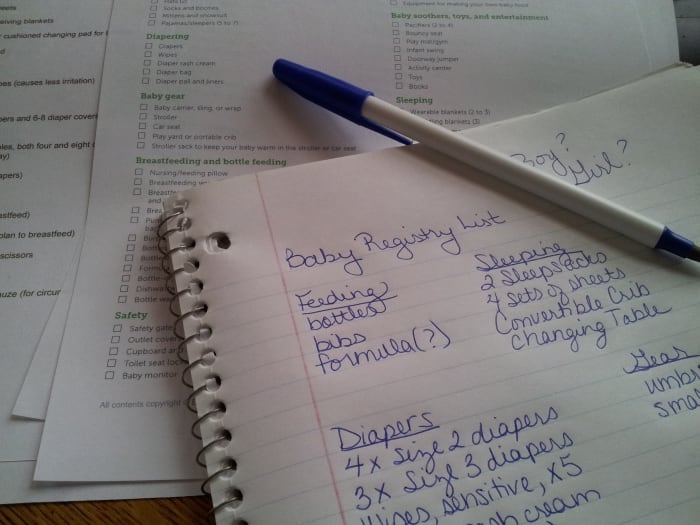 eets
eiving blankets
cushioned changing pad for
d
es (causes less irritation)
ers and 6-8 diaper cover
les, both four and eight
ay)
apers)
astfeed)
plan to breastfeed)
scissors
uze (for circur
Hats
Socks and booties
Mittens and snowsuit
Pajamas/sleepers (5 to 7)
Diapering
Diapers
Wipes
Diaper rash cream
Diaper bag
Diaper pail and liners
Baby gear
Baby carrier, sling, or wrap
Stroller
Car seat
Play yard or portable crib
Stroller sack to keep your baby warm in the stroller or car seat
Breastfeeding and bottle feeding
Nursing/feeding pillow
Breastfeeding
Breastfe
and
Brea
Pu
ba
Bu
Bott
Bott
Form
Bottle
Dishwa
Bottle wa
Safety
Safety gate
Outlet cover
Cupboard an
Toilet seat loc
Baby monitor
All contents copyright
Equipment for making your own baby food
Baby soothers, toys, and entertainment
Pacifiers (2 to 4)
Bouncy seat
Play mat/gym
Infant swing
Doorway jumper
Activity center
Toys
Books
Sleeping
Wearable blankets (2 to 3)
blankets (3)
Boy?
Girl?
Baby Registry List
Feeding
bottles
bibs
formula(?)
Sleeping
2 Sleepsacks
4 sets of sheets
Convertible Crib
changing Table
Gear
umbr
sma
Diapers
4x size 2 diapers
3x size 3 diapers
Wipes, sensitive, x5
cream